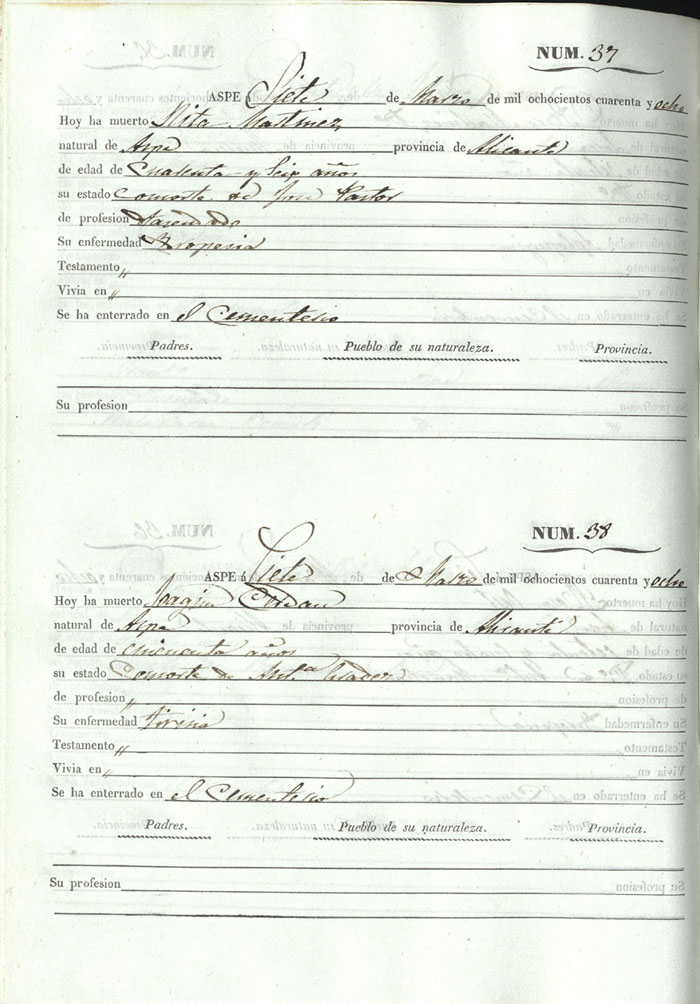 NUM. 37
ASPE á Siete de Marzo de mil ochocientos cuarenta y ocho
Hoy ha muerto Rita Martinez
natural de Aspe provincia de Alicante
de edad de Cuarenta y Seix años
su estado Consorte de Jose Pastor
de profesion
Su enfermedad Hidropesia
Testamento "
Vivia en "
Se ha enterrado en el Cementerio
Padres. Pueblo de su naturaleza. Provincia.
Su profesion
NUM. 38
ASPE á Siete de Marzo de mil ochocientos cuarenta y ocho
Hoy ha muerto Joaquin
natural de Aspe provincia de Alicante
de edad de cincuenta años
su estado Consorte de Ant.a
de profesion "
Su enfermedad Tirisia
Testamento "
Vivia en "
Se ha enterrado en el Cementerio
Padres. Pueblo de su naturaleza. Provincia.
Su profesion